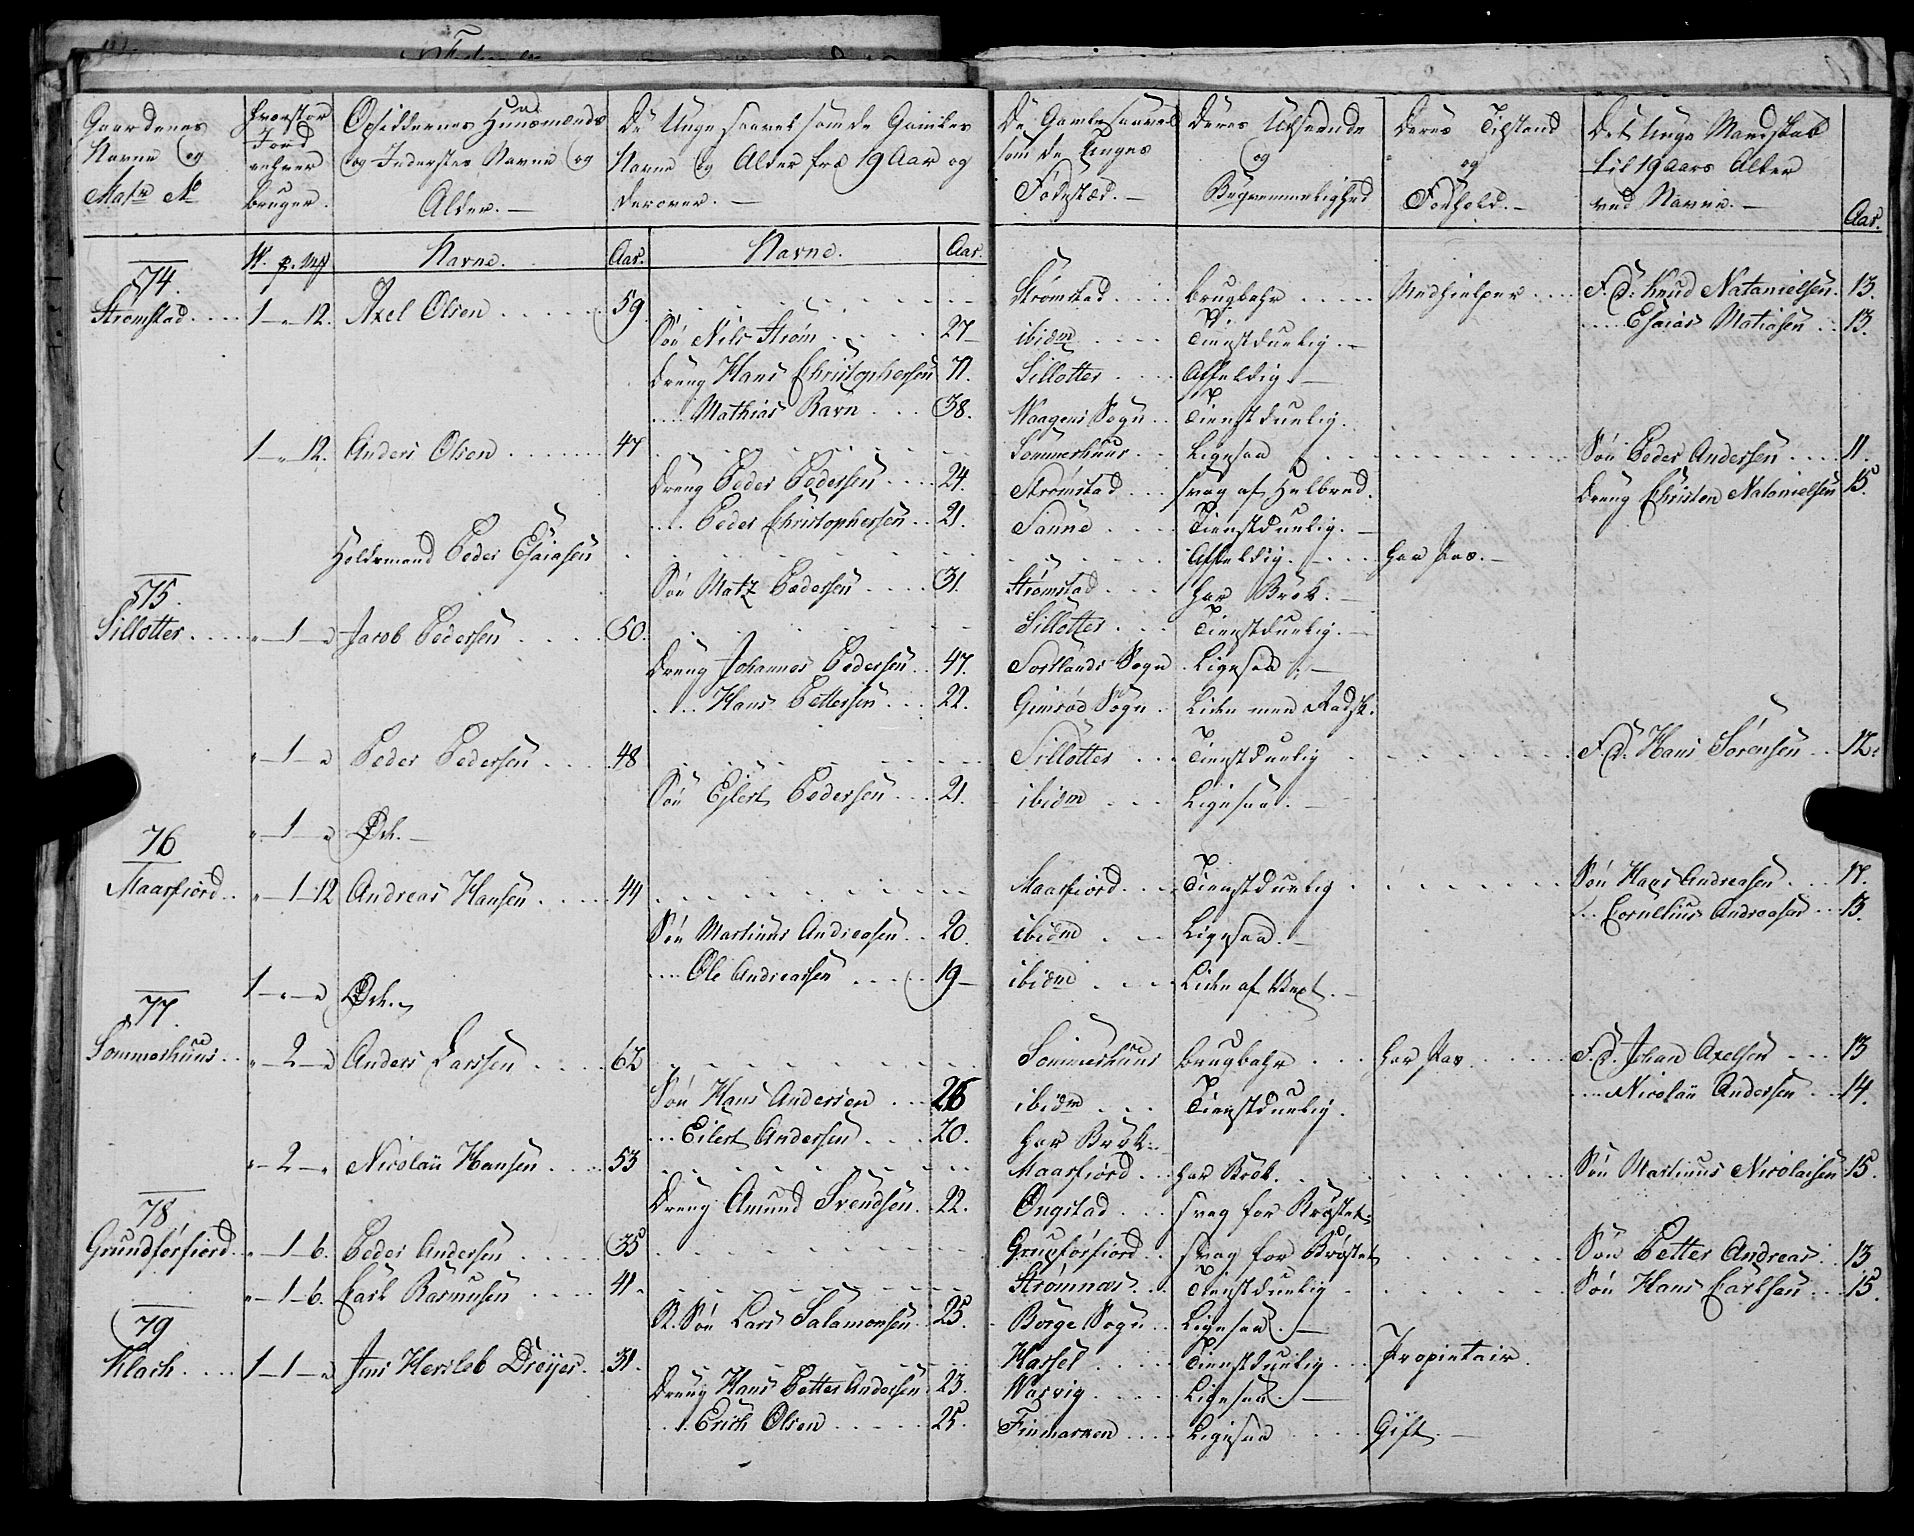 Gaardenes Navne og Matr No
hvorstor Jord enhver bruger.
Opsiddernes Huusmænds og Inderstes Navne og Alder. —
De Unge saavel som de Gamles Navne og Alder fra 19 Aar og derover. —
De Gamle saavel som de Unges Fødestæd. —
Deres Udseende og Beqvemmelighed
Deres Tilstand og Forhold. —
Det Unge Mandskab til 19 Aars Alder ved Navne. —
Aar.
W. p. Navne. Aar. Navne. Aar.
74.
Strømstad 1 - " 12. Axel Olsen 59. Strømstad brugbahr Medhielper F. d: Knud Natanielsen 13.
Søn Nils Strøm 27 ibidm Tienstduelig. — Esaias Matiasen 13.
Dreng Hans Christophersen 71. Sillotter Affeldig. —
Mathias Ravn 38. Waagens Sogn Tienstduelig.
1 - " 12. Anders Olsen 47 Sommerhuus Ligesaa Søn Peder Andersen 11.
Dreng Peder Pedersen 24. Strømstad svag af Helbred. Dreng Christen Natanielsen 15.
Peder Christophersen 21. Sanne Tienstduelig. —
Holdsmand Peder Esaiasen Affeldig. har Pas. —
Søn Matz Pedersen 31. Strømstad har Brok. —
75.
Sillotter " 1 " Jacob Pedersen 50. Sillotter Tienstduelig. —
Dreng Johannes Pedersen 47. Sortlands Sogn Ligesaa. —
Hans Pettersen 22. Gimsød Sogn Liden men Radsk.
" 1 " Peder Pedersen 48 Sillotter Tienstduelig F. d. Hans Sørensen 12.
Søn Ejlert Pedersen 21. ibidm Ligesaa. —
" 1 " Øde. —
76
Maarfiord " 1 12 Andreas Hansen 44 Maarfiord Tienstduelig Søn Hans Andreasen 17.
Søn Martinus Andreasen 20. ibidm Ligesaa. — Cornelius Andreasen 13.
Ole Andreasen 19 ibidm Liden af Vext. —
1 " " Øde.
77.
Sommerhuus " 2 " Anders Larssen 62 Sommerhuus brugbahr har Pas F. d. Johan Axelsen 13
Søn Hans Andersen 26 ibidm Tienstduelig. Nicolai Andersen 14.
Eilert Andersen 20. har Brok.
" 2 " Nicolai Hansen 53 Maarfiord har Brok. Søn Martinus Nicolaisen 15.
Dreng Amund Svendsen 22. Ongstad svag for Brøstet.
78.
Grundforfiord " 1 6. Peder Andersen 35 Grunforfiord svag for Brøstet Søn Petter Andreas 13
" 1 6. Carl Rasmusen 41. Strømnæs Tienstduelig Søn Hans Carlsen 15.
St. Søn Lars Salamonsen 25. Borge Sogn Ligesaa. —
79
Klach 1 - 1 " Jens Hersleb Dreyer 31. Hassel Tienstduelig Propietair.
Dreng Hans Petter Andersen 23. Warvig Ligesaa. —
Erich Olsen 25. Finmarken Ligesaa Gift. —